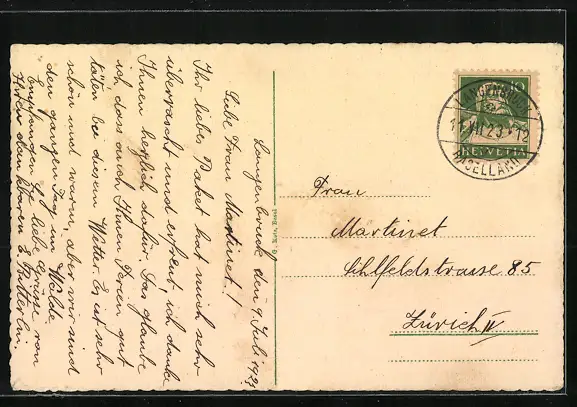 Langenbruck den 9. Juli 192
Liebe Frau Martinet!
Ihr liebes Paket hat mich sehr
überrascht und erfreut, ich danke
Ihnen herzlich dafür. Das glaube
ich, dass auch Ihnen Ferien gut
täten bei diesem Wetter. Es ist sehr
schön und warm, aber wir sind
den ganzen Tag im Walde.
Empfangen Sie liebe Grüsse von
Ihrer dankbaren
LANGENBRUCK
VII. 23 - 12
BASELLAND
HELVETIA
Frau
Martinet
Sihlfeldstrasse 85
Zürich IV